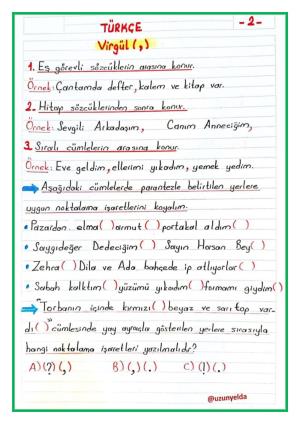 TÜRKÇE
-2-
Virgül (,)
1. Eş görevli sözcüklerin arasına konur.
Örnek: Çantamda defter, kalem ve kitap var.
2. Hitap sözcüklerinden sonra konur.
Örnek: Sevgili Arkadaşım, Canım Anneciğim,
3. Sıralı cümlelerin arasına konur.
Örnek: Eve geldim, ellerimi yıkadım, yemek yedim.
Aşağıdaki cümlelerde parantezle belirtilen yerlere
uygun noktalama işaretlerini koyalım.
• Pazardan elma( )armut( )portakal aldım( )
• Saygıdeğer Dedeciğim( ) Sayın Hasan Bey( )
• Zehra( )Dila ve Ada bahçede ip atlıyorlar( )
• Sabah kalktım( )yüzümü yıkadım( )formamı giydim( )
"Torbanın içinde kırmızı( )beyaz ve sarı top var-
dı( )" cümlesinde yay ayraçla gösterilen yerlere sırasıyla
hangi noktalama işaretleri yazılmalıdır?
A) (?) (,) B) (,) (.) C) (!) (.)
@uzunyelda